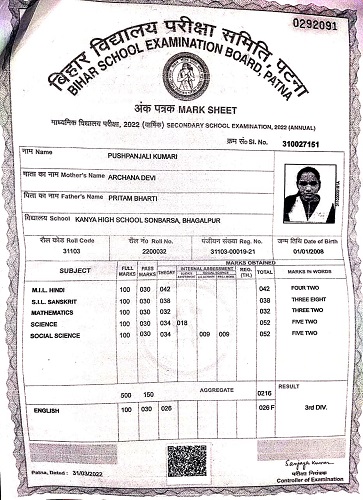 0292091
बिहार विद्यालय परीक्षा समिति, पटना
BIHAR SCHOOL EXAMINATION BOARD, PATNA
अंक पत्रक MARK SHEET
माध्यमिक विद्यालय परीक्षा, 2022 (वार्षिक) SECONDARY SCHOOL EXAMINATION, 2022 (ANNUAL)
क्रम सं० Sl. No. 310027151
नाम Name PUSHPANJALI KUMARI
माता का नाम Mother's Name ARCHANA DEVI
पिता का नाम Father's Name PRITAM BHARTI
विद्यालय School KANYA HIGH SCHOOL SONBARSA, BHAGALPUR
रौल कोड Roll Code रौल नं० Roll No. पंजीयन संख्या Reg. No. जन्म तिथि Date of Birth
31103 2200032 31103-00019-21 01/01/2008
MARKS OBTAINED
SUBJECT FULL MARKS PASS MARKS THEORY INTERNAL ASSESSMENT REG. (TH.) TOTAL MARKS IN WORDS
M.I.L. HINDI 100 030 042 042 FOUR TWO
S.I.L. SANSKRIT 100 030 038 038 THREE EIGHT
MATHEMATICS 100 030 032 032 THREE TWO
SCIENCE 100 030 034 018 052 FIVE TWO
SOCIAL SCIENCE 100 030 034 009 009 052 FIVE TWO
500 150 AGGREGATE 0216 RESULT
ENGLISH 100 030 026 026 F 3rd DIV.
Patna, Dated : 31/03/2022
परीक्षा नियंत्रक
Controller of Examination